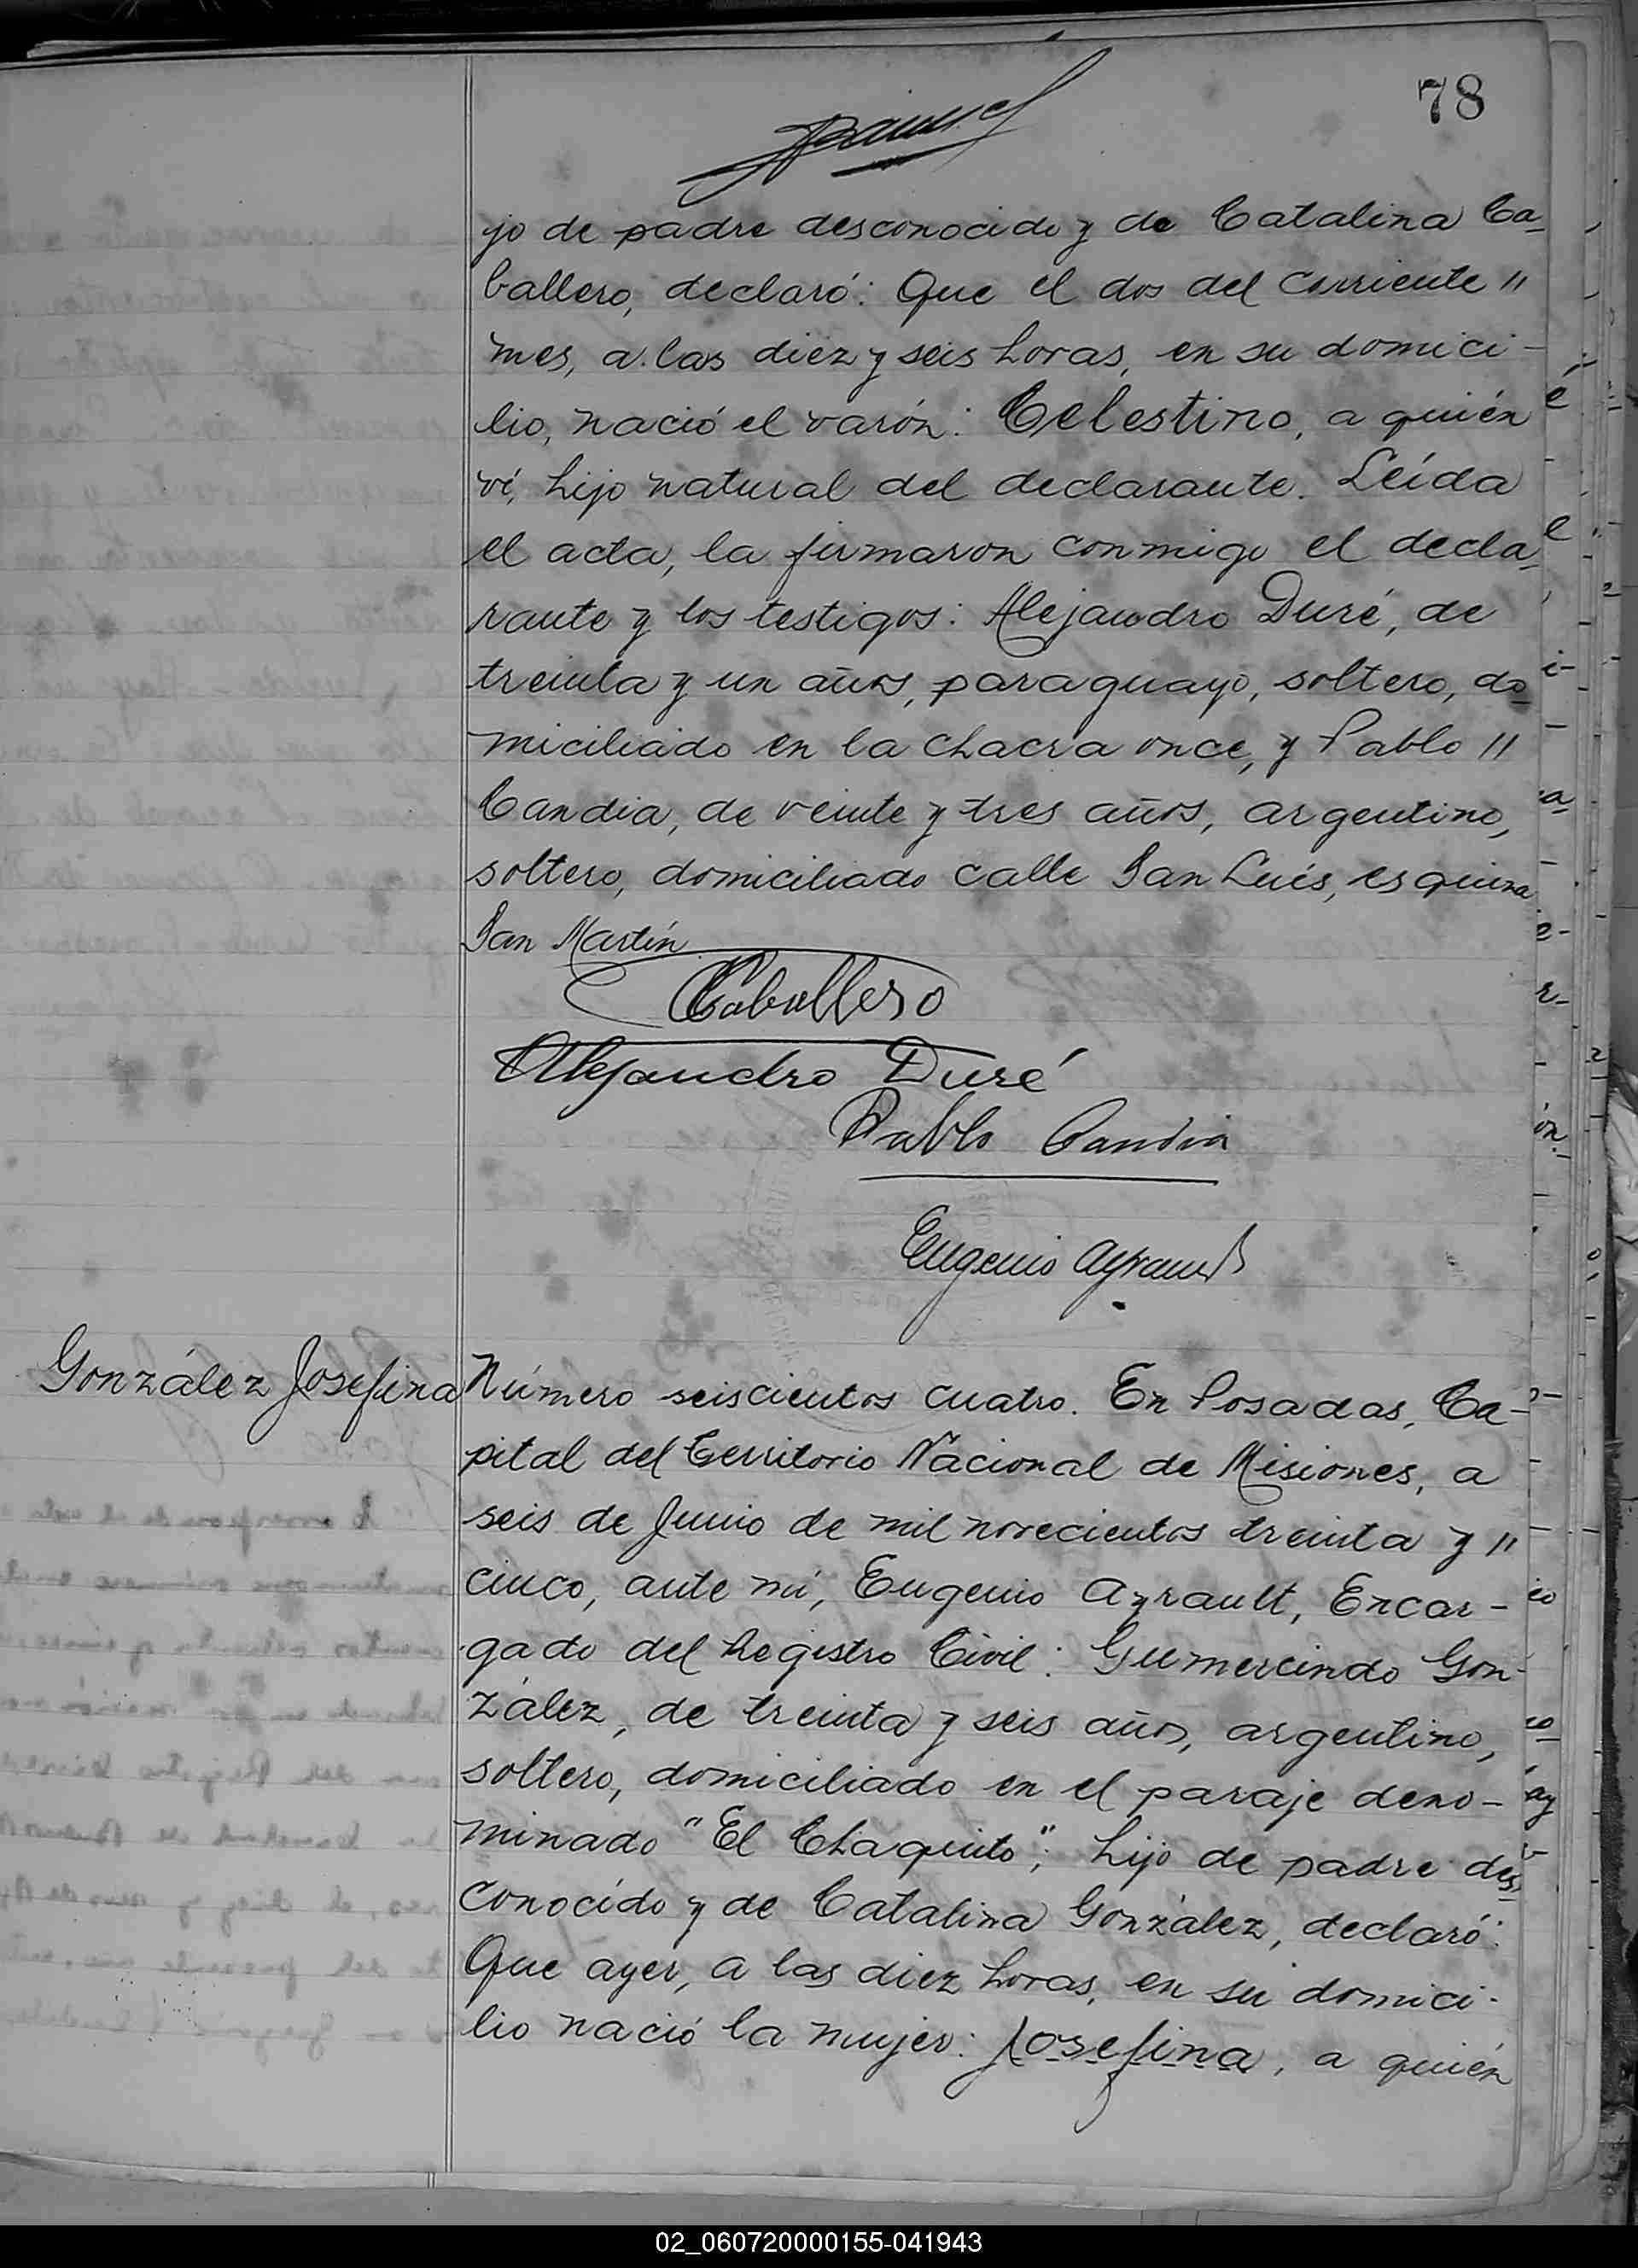 78
jo de padre desconocido y de Catalina Ca-
ballero, declaró: Que el dos del corriente "
mes, a las diez y seis horas, en su domici-
lio, nació el varón: Celestino, a quién
ví, hijo natural del declarante. Leída
el acta, la firmaron conmigo el decla-
rante y los testigos: Alejandro Duré, de
treinta y un años, paraguayo, soltero, do-
miciliado en la chacra once, y Pablo "
Candia, de veinte y tres años, argentino,
soltero, domiciliado calle San Luís, esquina
San Martín
Caballero
Alejandro Duré
Pablo Candia
Eugenio Ayrault
González Josefina
Número seiscientos cuatro. En Posadas, Ca-
pital del Territorio Nacional de Misiones, a
seis de Junio de mil novecientos treinta y "
cinco, ante mí, Eugenio Ayrault, Encar-
gado del Registro Civil: Gumercindo Gon-
zález, de treinta y seis años, argentino,
soltero, domiciliado en el paraje deno-
minado "El Chaquito"; hijo de padre des-
conocido y de Catalina González, declaró:
Que ayer, a las diez horas, en su domici-
lio nació la mujer: Josefina, a quién
02_060720000155-041943